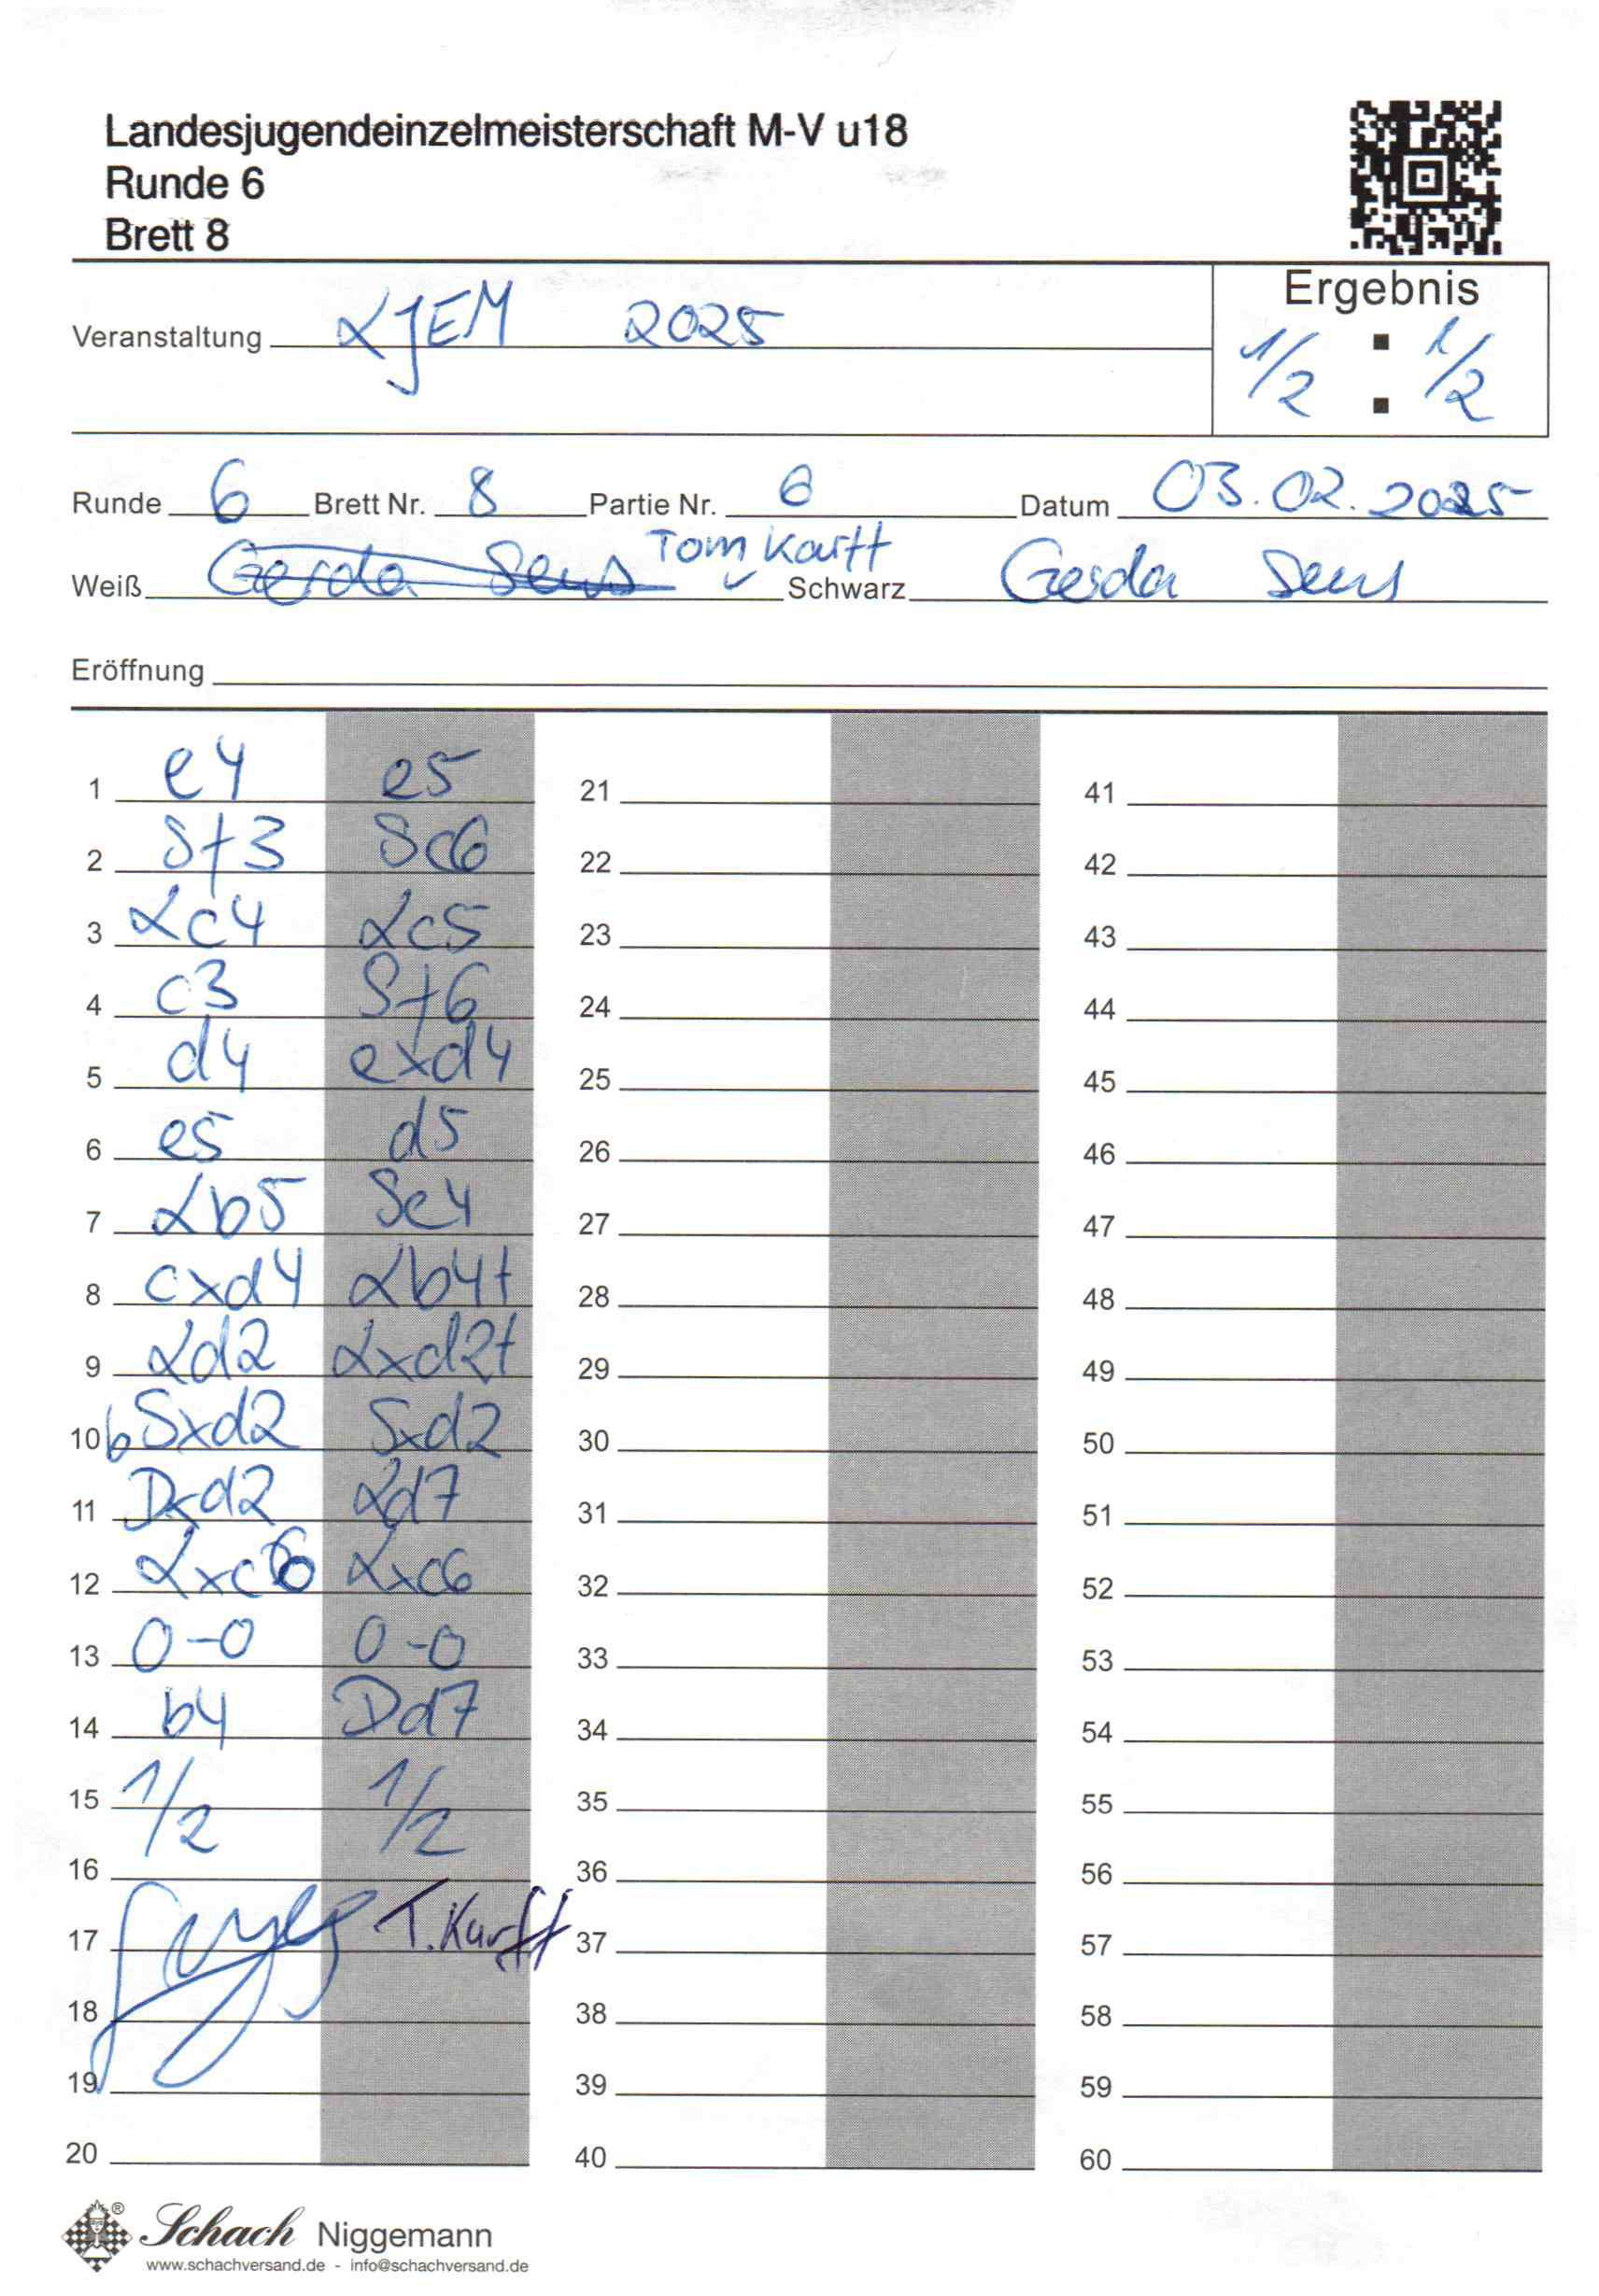 Landesjugendeinzelmeisterschaft M-V u18
Runde 6
Brett 8
Ergebnis
Veranstaltung LJEM 2025
1/2 : 1/2
Runde 6 Brett Nr. 8 Partie Nr. 6 Datum 03.02.2025
Tom Karff
Weiß Gerda Sens Schwarz Gerda Sens
Eröffnung
1 e4 e5 21 41
2 Sf3 Sc6 22 42
3 Lc4 Lc5 23 43
4 c3 Sf6 24 44
5 d4 exd4 25 45
6 e5 d5 26 46
7 Lb5 Se4 27 47
8 cxd4 Lb4+ 28 48
9 Ld2 Lxd2+ 29 49
10 bSxd2 Sxd2 30 50
11 Dxd2 Ld7 31 51
12 Lxc6 Lxc6 32 52
13 0-0 0-0 33 53
14 b4 Dd7 34 54
15 1/2 1/2 35 55
16 36 56
17 T. Karff 37 57
18 38 58
19 39 59
20 40 60
Schach Niggemann
www.schachversand.de - info@schachversand.de